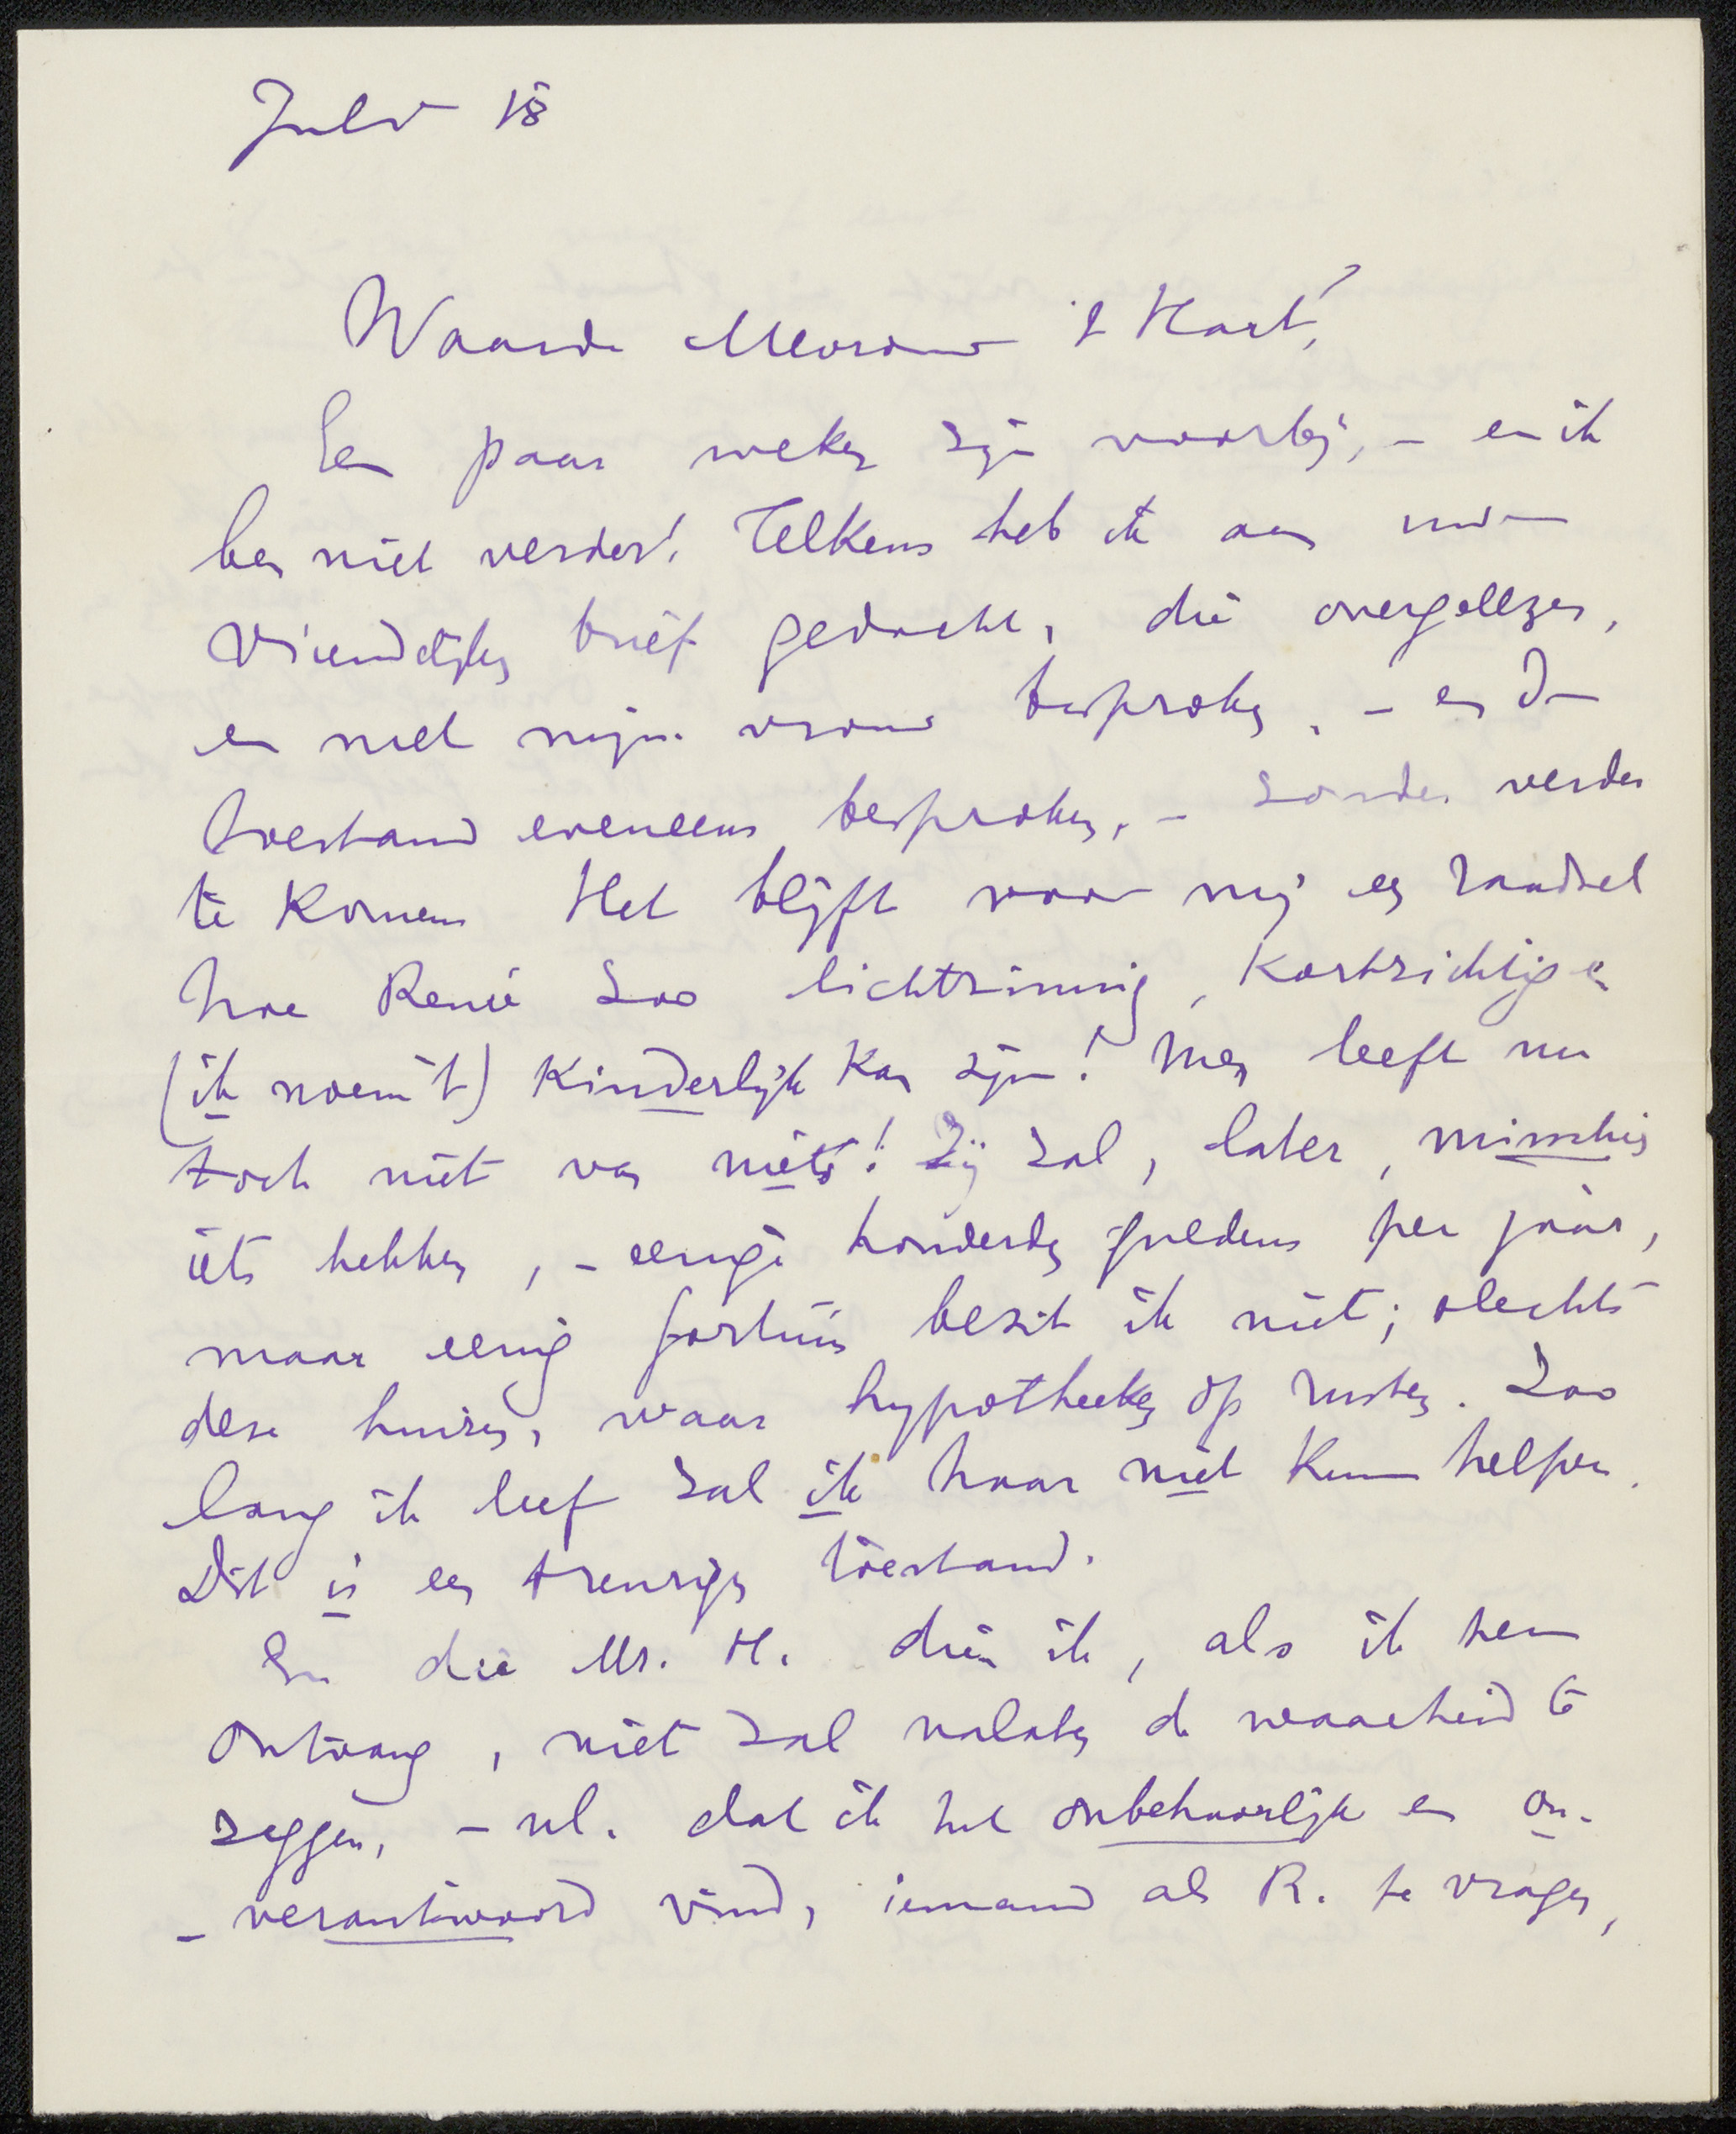 July 18
Waarde Mevrouw 't Hart,
Een paar weken zijn voorbij, – en ik
ben niet verder! Telkens heb ik aan uw
vriendelijken brief gedacht, die overgelezen,
en met mijn vrouw besproken, – en den
toestand eveneens besproken, – zonder verder
te komen. Het blijft voor mij een raadsel
hoe Renée zoo lichtzinnig, kortzichtig en
(ik noem 't) kinderlijk kan zijn! Men leeft nu
toch niet van niets! Zij zal, later, misschien
iets hebben, – eenige honderden guldens per jaar,
maar eenig fortuin bezit ik niet; slechts
deze huizen, waar hypotheeken op rusten. Zoo
lang ik leef zal ik haar niet kunnen helpen.
Dit is een treurigen toestand.
En die Mr. H. dien ik, als ik hem
ontvang, niet zal nalaten de waarheid te
zeggen, – nl. dat ik het onbehoorlijk en on-
-verantwoord vind, iemand als R. te vragen,